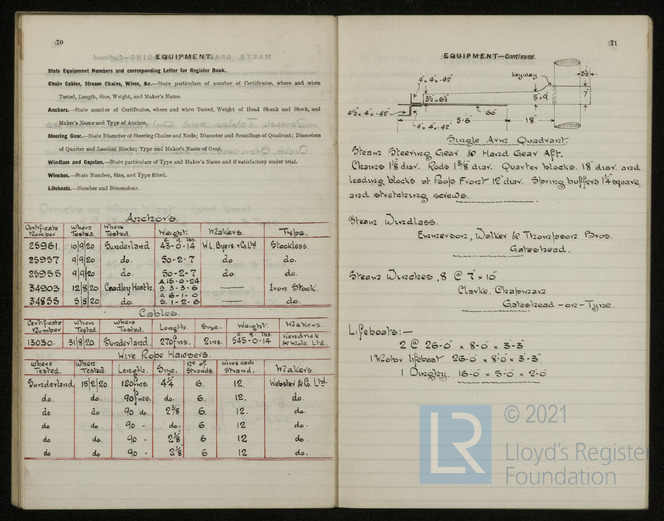 70
EQUIPMENT.
State Equipment Numbers and corresponding Letter for Register Book.
Chain Cables, Stream Chains, Wires, &c.—State particulars of number of Certificates, where and when
Tested, Length, Size, Weight, and Maker's Name.
Anchors.—State number of Certificates, where and when Tested, Weight of Head Shank and Stock, and
Maker's Name and Type of Anchor.
Steering Gear.—State Diameter of Steering Chains and Rods; Diameter and Scantlings of Quadrant; Diameters
of Quarter and Leading Blocks; Type and Maker's Name of Gear.
Windlass and Capstan.—State particulars of Type and Maker's Name and if satisfactory under trial.
Winches.—State Number, Size, and Type fitted.
Lifeboats.—Number and Dimensions.
Anchors.
Certificate Number When Tested. Where Tested. Weight. Makers. Type.
C. q. lbs.
25961. 10/9/20 Sunderland. 43-0-14 W.L. Byers & Co Ltd Stockless.
25957 9/9/20 do. 50-2-7 do. do.
25955 9/9/20 do. 50-2-7 do. do.
34903 12/8/20 Cradley Heath. A.15-0-24 S. 3-3-6 Iron Stock.
34855 5/8/20 do. A 6-1-0 S. 1-2-6 do.
Cables.
Certificate Number When Tested. Where Tested. Length. Size. Weight. Makers.
13030. 31/8/20 Sunderland. 270 fms. 2 ins. 545-0-14 Ltd.
Wire Rope Hawsers.
Where Tested. When Tested. Length. Size. No of Strands. Wires each Strand. Makers
Sunderland 15/2/20 120 fms. 4¼ 6. 12. Webster & Co. Ltd.
do. do. 90 fms. do. 6. 12. do.
do. do 90 do. 2⅜ 6. 12 do.
do. do. 90 - do. 6. 12 do.
do. do. 90 - 6. 12 do.
do do 90 - 6. 12 do.
71
EQUIPMENT—Continued.
keyway
4" × 4" × .42"
3½"
7"
5" × 9"
3½ × 6½
.60"
4½" × 4" × .42"
3'-6"
18"
4" × 4" × .42"
Single Arm Quadrant.
Steam Steering Gear & Hand Gear Aft.
Chains 1⅛ diar. Rods 1⅜ diar. Quarter blocks. 18" diar. and
leading blocks at Poop Front 12" diar. Spring buffers 1¼ square
and stretching screws.
Steam Windlass.
Emmerson, Walker & Thompson Bros.
Gateshead.
Steam Winches, 8 @ 7" × 10"
Clarke, Chapman
Gateshead-on-Tyne.
Lifeboats:—
2 @ 26.0' × 8.0' × 3.3'
1 Motor lifeboat 26.0' × 8.0' × 3.3'.
1 Dinghy. 16.0' × 5.0' × 2.0'
© 2021
LR
Lloyd's Register
Foundation